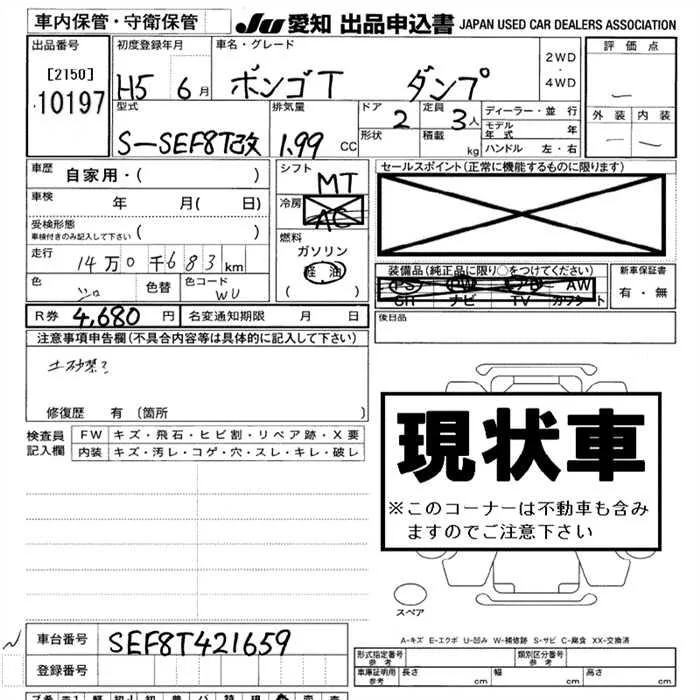 車内保管・守衛保管 JU 愛知 出品申込書 JAPAN USED CAR DEALERS ASSOCIATION
出品番号 初度登録年月 車名・グレード 2WD・4WD 評価点
[2150] H5 6月 ボンゴT ダンプ
10197 型式 排気量 ドア 定員 ディーラー・並行 外装 内装
2 3人 モデル年式 年
S-SEF8T改 1.99 CC 形状 積載 kg ハンドル 左・右
車歴 自家用・( ) シフト MT セールスポイント(正常に機能するものに限ります)
車検 年 月( 日) 冷房 AC
受検形態 車検付きのみ記入して下さい ( ) 燃料 ガソリン
走行 14万0千683km 軽油 装備品(純正品に限り○をつけてください) 新車保証書
色 シロ 色替 色コード WU ( ) PS PW AB AW 有・無
ナビ TV
R券 4,680円 名変通知期限 月 日 後日品
注意事項申告欄(不具合内容等は具体的に記入して下さい)
土砂禁?
修復歴 有 〔箇所
現状車
※このコーナーは不動車も含み
ますのでご注意下さい
検査員 FW キズ・飛石・ヒビ割・リペア跡・X要
記入欄 内装 キズ・汚レ・コゲ・穴・スレ・キレ・破レ
スペア
A-キズ E-エクボ U-凹み W-補修跡 S-サビ C-腐食 XX-交換済
車台番号 SEF8T421659
形式指定番号 参考 類別区分番号 参考
登録番号 車庫証明用 参考 長さ cm 幅 cm 高さ cm